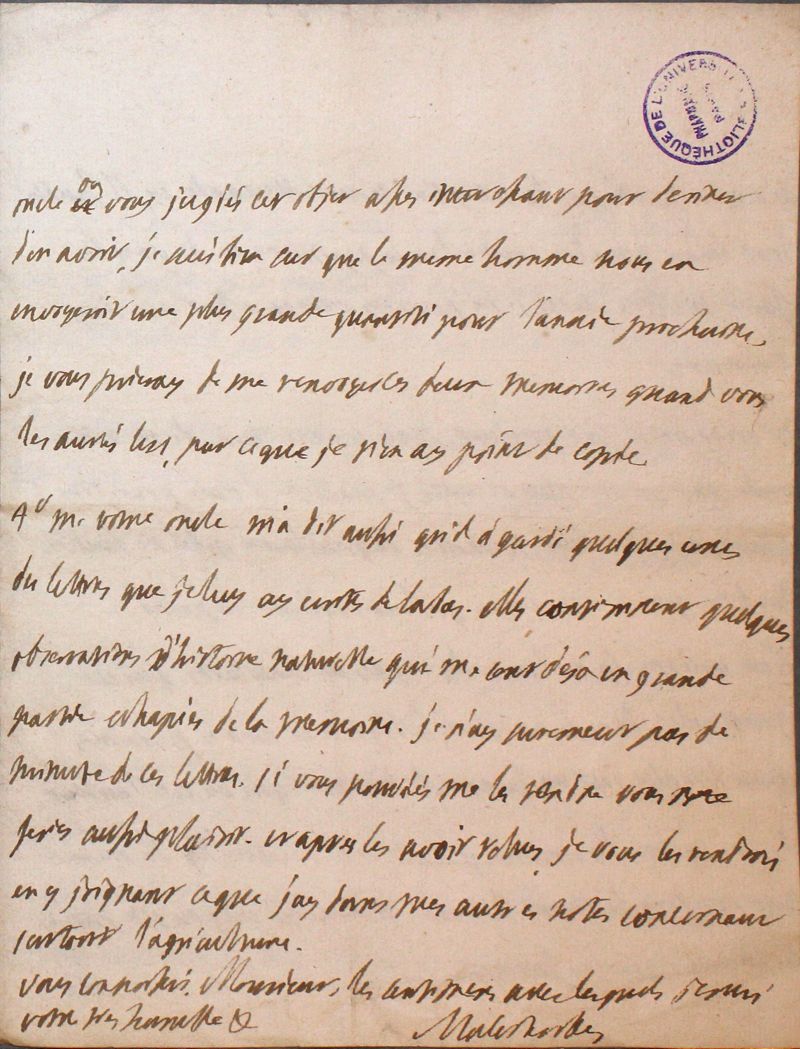 BIBLIOTHÈQUE DE L'UNIVERSITÉ
PHARMACIE
PARIS
oncle ou vous jugiés cet objet assés interessant pour desirer
d'en avoir, je suis bien sur que le meme homme nous en
envoyeroit une plus grande quantité pour l'année prochaine,
je vous prieray de me renvoyer les deux memoires quand vous
les aurés lus, parceque je n'en ay point de copie.
4° mr votre oncle m'a dit aussi qu'il a gardé quelques unes
des lettres que je luy ay ecrites de la bas. elles contiennent quelques
observations d'histoire naturelle qui me sont deja en grande
partie echapées de la memoire. je n'ay surement pas de
minute de ces lettres. si vous pouviés me les rendre vous me
feriés aussi plaisir. et apres les avoir relues, je vous les rendrois
en y joignant ce que j'ay dans mes autres notes concernant
surtout l'agriculture.
vous connoissés, Monsieur, les sentimens avec lesquels je suis
votre tres humble &
Malesherbes